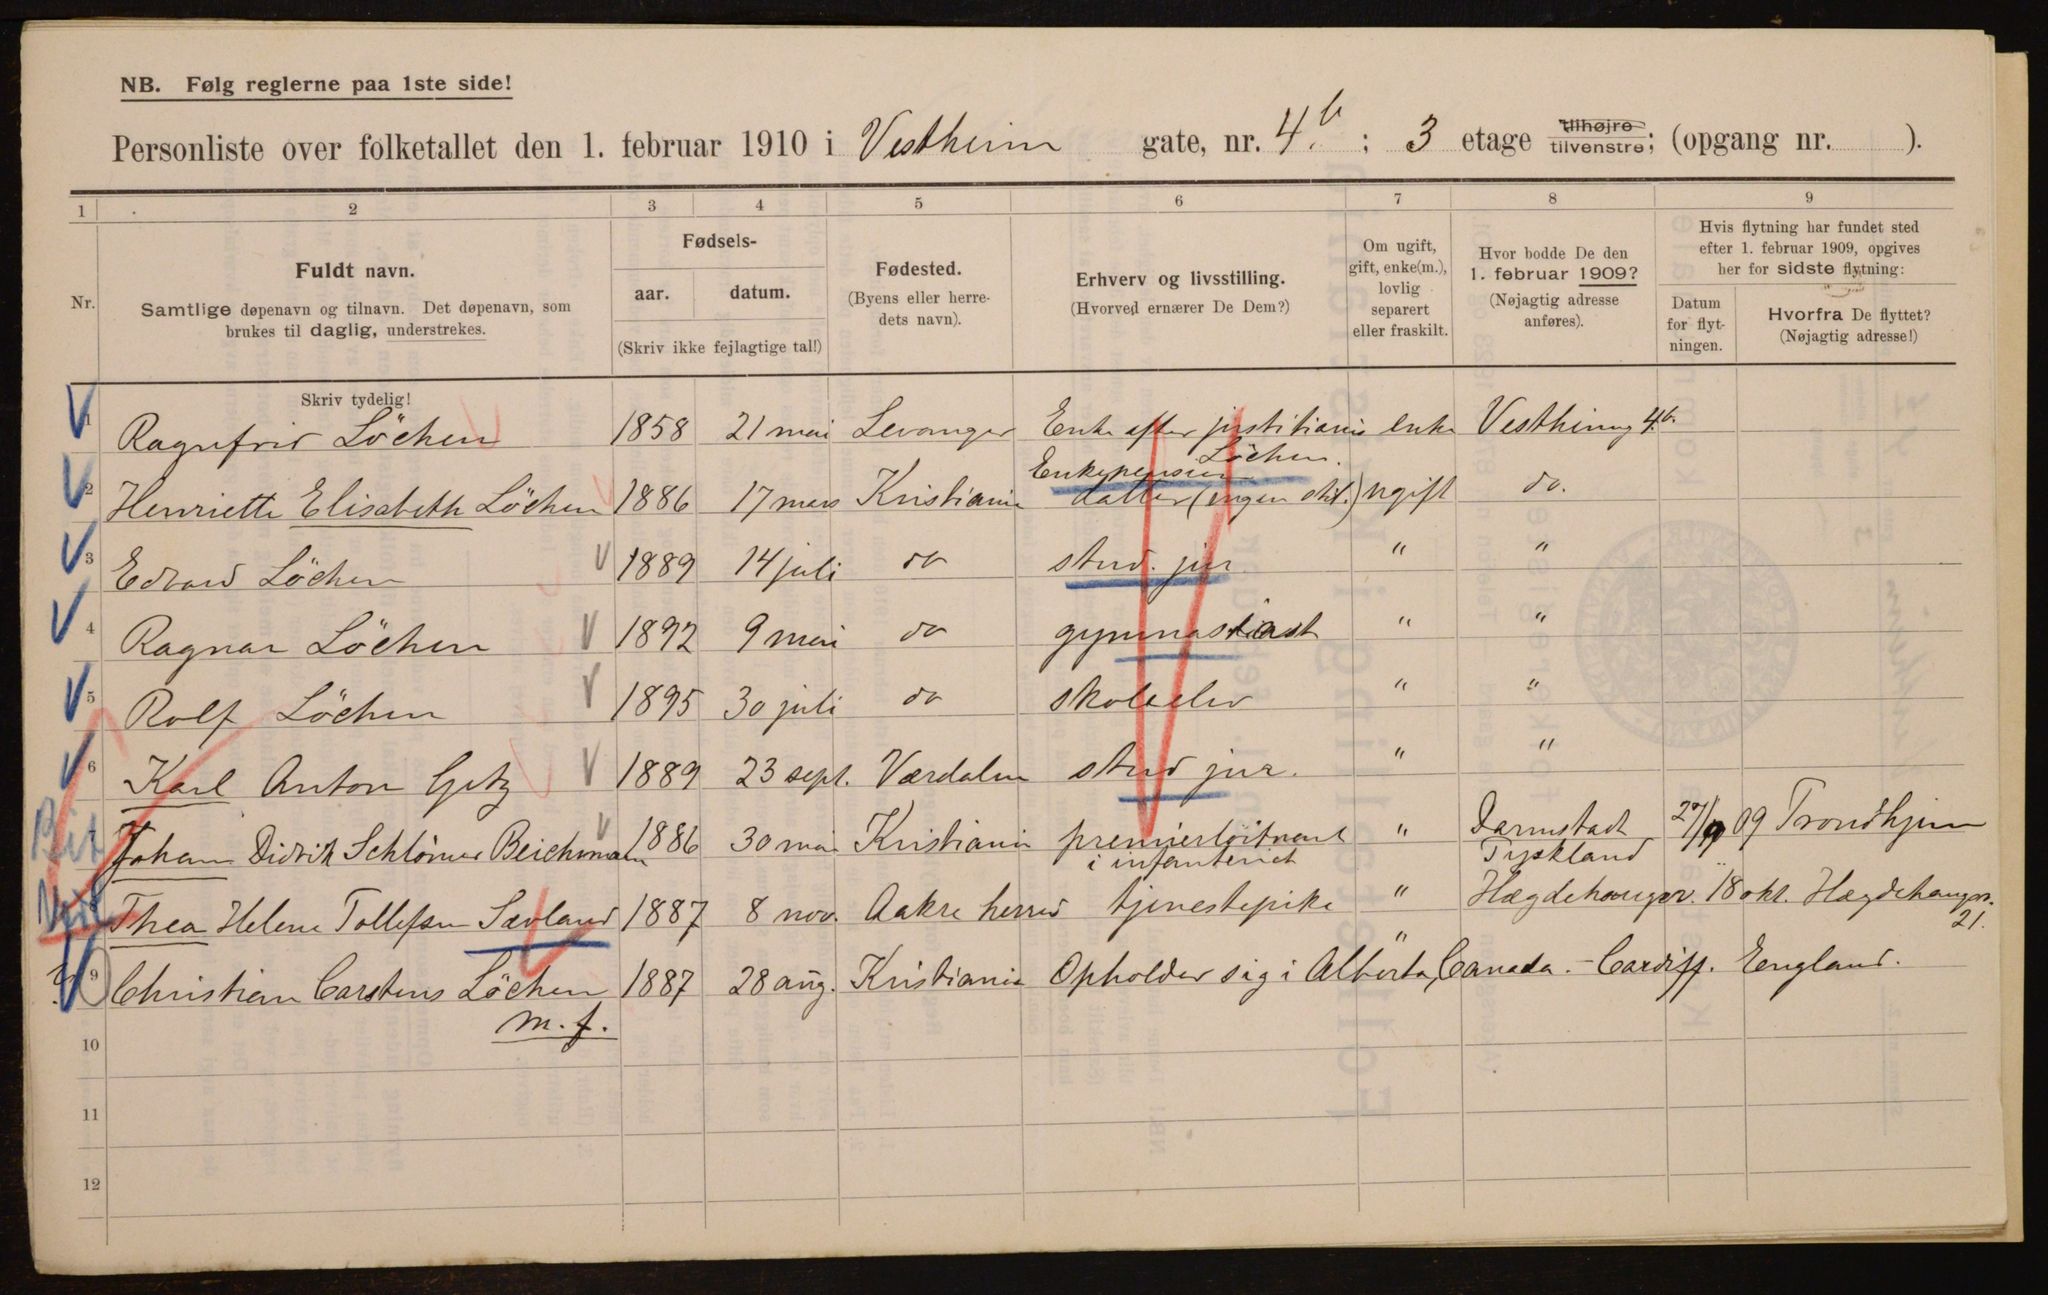 NB. Følg reglerne paa 1ste side!
Personliste over folketallet den 1. februar 1910 i Vestheim gate, nr. 4.b ; 3 etage tilhøjre tilvenstre; (opgang nr. ).
1 2 3 4 5 6 7 8 9
Nr.
Fuldt navn.
Samtlige døpenavn og tilnavn. Det døpenavn, som
brukes til daglig, understrekes.
Skriv tydelig!
Fødsels-
aar. datum.
(Skriv ikke fejlagtige tal!)
Fødested.
(Byens eller herre-
dets navn).
Erhverv og livsstilling.
(Hvorved ernærer De Dem?)
Om ugift,
gift, enke(m.),
lovlig
separert
eller fraskilt.
Hvor bodde De den
1. februar 1909?
(Nøjagtig adresse
anføres).
Hvis flytning har fundet sted
efter 1. februar 1909, opgives
her for sidste flytning:
Datum
for flyt-
ningen.
Hvorfra De flyttet?
(Nøjagtig adresse!)
1 Ragnfrid Löchen 1858 21 mai Levanger Enke efter justitiarius Löchen. Enkepension enke Vestheimg 4b.
2 Henriette Elisabeth Löchen 1886 17 mars Kristiania datter (ingen stil.) ugift do.
3 Edvard Löchen 1889 14 juli do stud. jur " "
4 Ragnar Löchen 1892 9 mai do gymnasiast " "
5 Rolf Löchen 1895 30 juli do skoleelev " "
6 Karl Anton Getz 1889 23 sept. Værdalen stud jur. " "
7 Johan Didrik Schlömer Beichmann 1886 30 mai Kristiania premierløitnant i infanteriet " Darmstadt Tyskland 27/9 09 Trondhjem
8 Thea Helene Tollefsen Sævland 1887 8 nov. Aakre herred tjenestepike " Hægdehaugsv. 18 okt. Hægdehaugsv. 21.
9 Christian Carstens Löchen 1887 28 aug. Kristiania Opholder sig i Alberta, Canada. - Cardiff. England.
m. f.
10
11
12